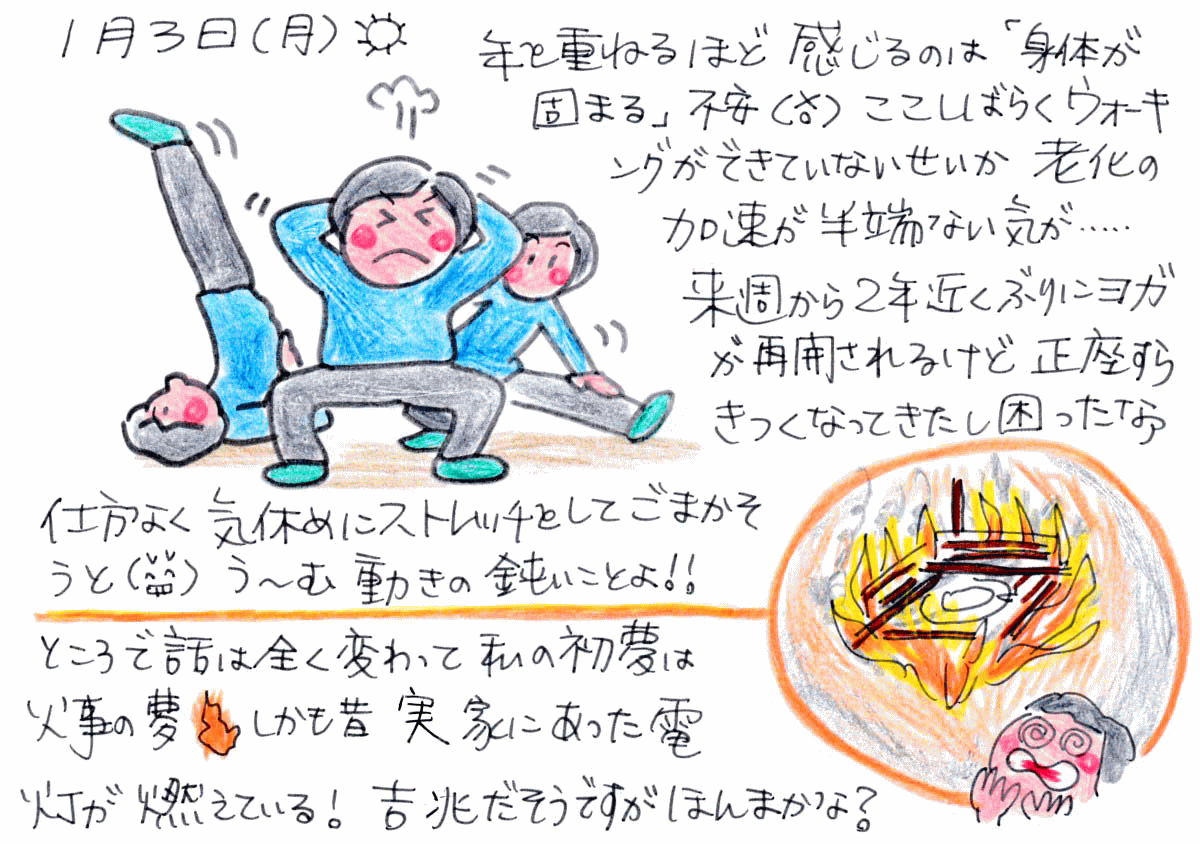 1月3日(月)
年と重ねるほど 感じるのは「身体が
固まる」不安
ここしばらくウォーキ
ングができていないせいか 老化の
加速が半端ない気が……
来週から2年近くぶりにヨガ
が再開されるけど 正座すら
きつくなってきたし困ったなァ
仕方なく 気休めにストレッチをしてごまかそ
うと
う〜む 動きの鈍いことよ!!
ところで話は全く変わって 私の初夢は
火事の夢 しかも昔 実家にあった電
灯が燃えている! 吉兆だそうですがほんまかいな?